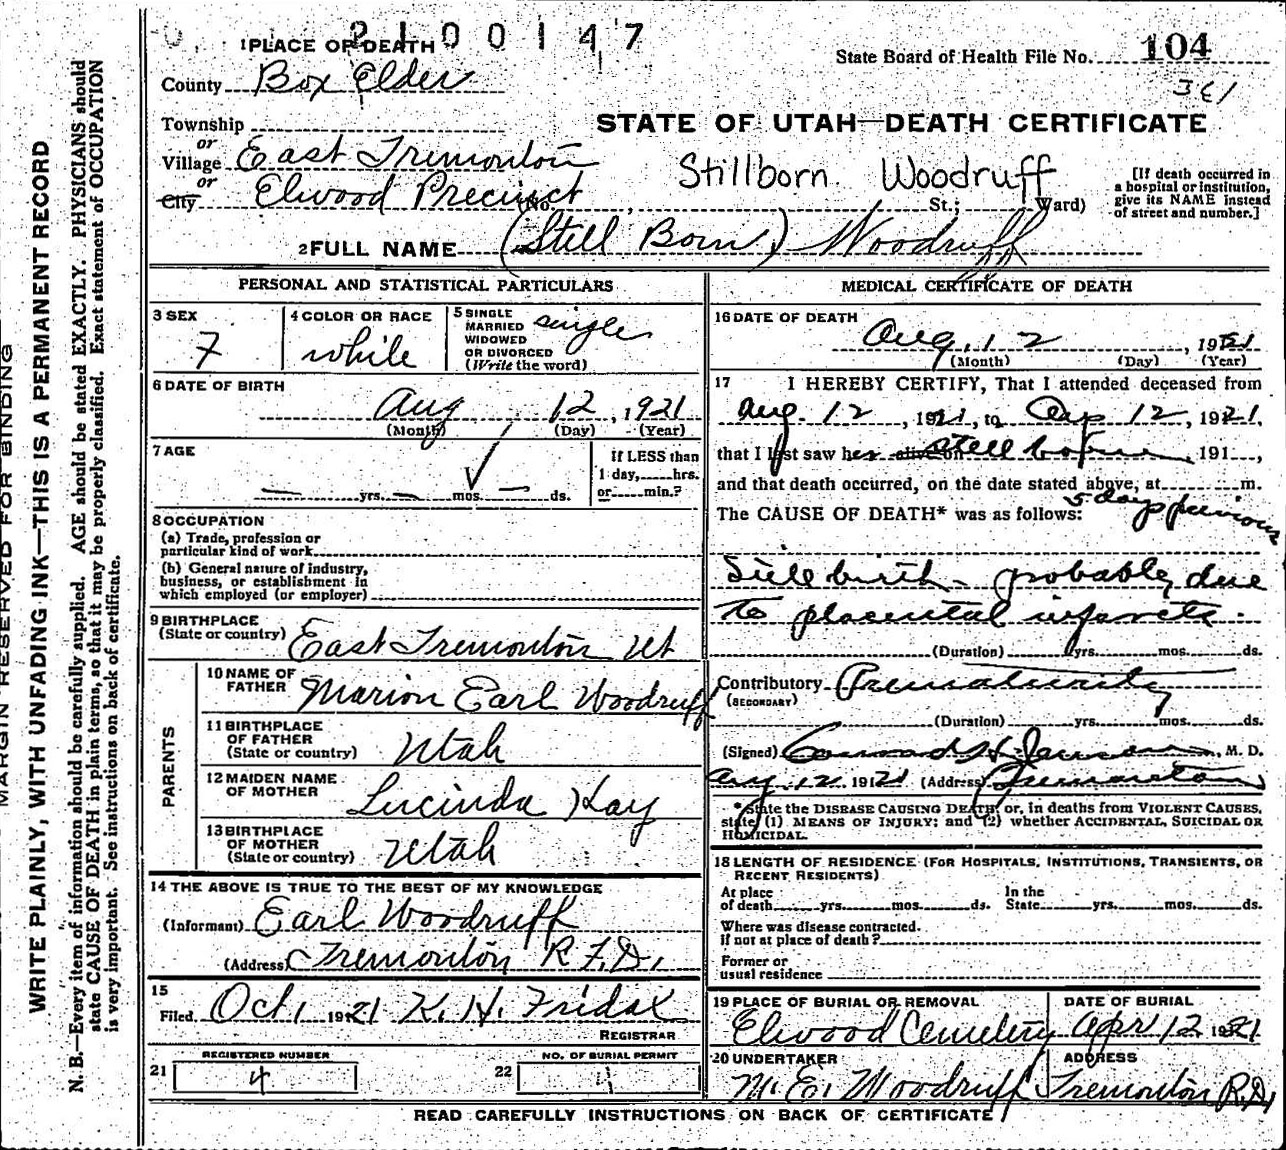 2100147
1 PLACE OF DEATH
State Board of Health File No. 104
361
County Box Elder
Township
STATE OF UTAH—DEATH CERTIFICATE
or
Village East Tremonton
Stillborn Woodruff
or
City Elwood Precinct No. St.; Ward)
[If death occurred in a hospital or institution, give its NAME instead of street and number.]
2 FULL NAME (Still Born) Woodruff
PERSONAL AND STATISTICAL PARTICULARS
3 SEX
F
4 COLOR OR RACE
white
5 SINGLE
MARRIED
WIDOWED
OR DIVORCED
(Write the word)
single
6 DATE OF BIRTH
Aug 12, 1921
(Month) (Day) (Year)
7 AGE
— yrs. — mos. — ds.
If LESS than
1 day, hrs.
or min.?
8 OCCUPATION
(a) Trade, profession or
particular kind of work
(b) General nature of industry,
business, or establishment in
which employed (or employer)
9 BIRTHPLACE
(State or country) East Tremonton Ut
PARENTS
10 NAME OF
FATHER Marion Earl Woodruff
11 BIRTHPLACE
OF FATHER
(State or country) Utah
12 MAIDEN NAME
OF MOTHER Lucinda Hay
13 BIRTHPLACE
OF MOTHER
(State or country) Utah
14 THE ABOVE IS TRUE TO THE BEST OF MY KNOWLEDGE
(Informant) Earl Woodruff
(Address) Tremonton R.F.D.
15
Filed Oct 1 1921 K. H. Fridal
REGISTRAR
REGISTERED NUMBER
21 4
NO. OF BURIAL PERMIT
22 4
MEDICAL CERTIFICATE OF DEATH
16 DATE OF DEATH
Aug. 12, 1921
(Month) (Day) (Year)
17 I HEREBY CERTIFY, That I attended deceased from
Aug. 12, 1921, to 12, 1921,
that I last saw her alive on still born, 191 ,
and that death occurred, on the date stated above, at m.
The CAUSE OF DEATH* was as follows: 5 days previous
Still birth - probably due
to placental infarcts.
(Duration) yrs. mos. ds.
Contributory Prematurity
(SECONDARY)
(Duration) yrs. mos. ds.
(Signed) Conrad H. Jensen, M. D.
Aug. 12, 1921 (Address) Tremonton
* State the DISEASE CAUSING DEATH, or, in deaths from VIOLENT CAUSES,
state (1) MEANS OF INJURY; and (2) whether ACCIDENTAL, SUICIDAL OR
HOMICIDAL.
18 LENGTH OF RESIDENCE (FOR HOSPITALS, INSTITUTIONS, TRANSIENTS, OR
RECENT RESIDENTS)
At place
of death yrs. mos. ds.
In the
State yrs. mos. ds.
Where was disease contracted.
if not at place of death?
Former or
usual residence
19 PLACE OF BURIAL OR REMOVAL
Elwood Cemetery
DATE OF BURIAL
Apr 12 1921
20 UNDERTAKER
M. E. Woodruff
ADDRESS
Tremonton R.D.
READ CAREFULLY INSTRUCTIONS ON BACK OF CERTIFICATE
MARGIN RESERVED FOR BINDING
WRITE PLAINLY, WITH UNFADING INK—THIS IS A PERMANENT RECORD
N. B.—Every item of information should be carefully supplied. AGE should be stated EXACTLY. PHYSICIANS should
state CAUSE OF DEATH in plain terms, so that it may be properly classified. Exact statement of OCCUPATION
is very important. See instructions on back of certificate.